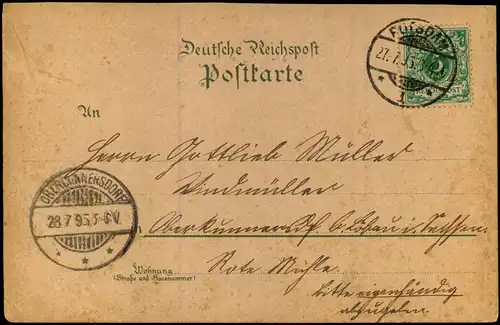 Deutsche Reichspost
Postkarte
POTSDAM
27.7.95
1
An
Herrn Gottlieb Müller
Windmüller
Oberkunnersdf. b. Löbau i. Sachsen.
OBERCUNNERSDORF
28.7 95.5-6V.
Wohnung
(Straße und Hausnummer)
Rote Mühle.
Bitte eigenhändig
abzugeben.